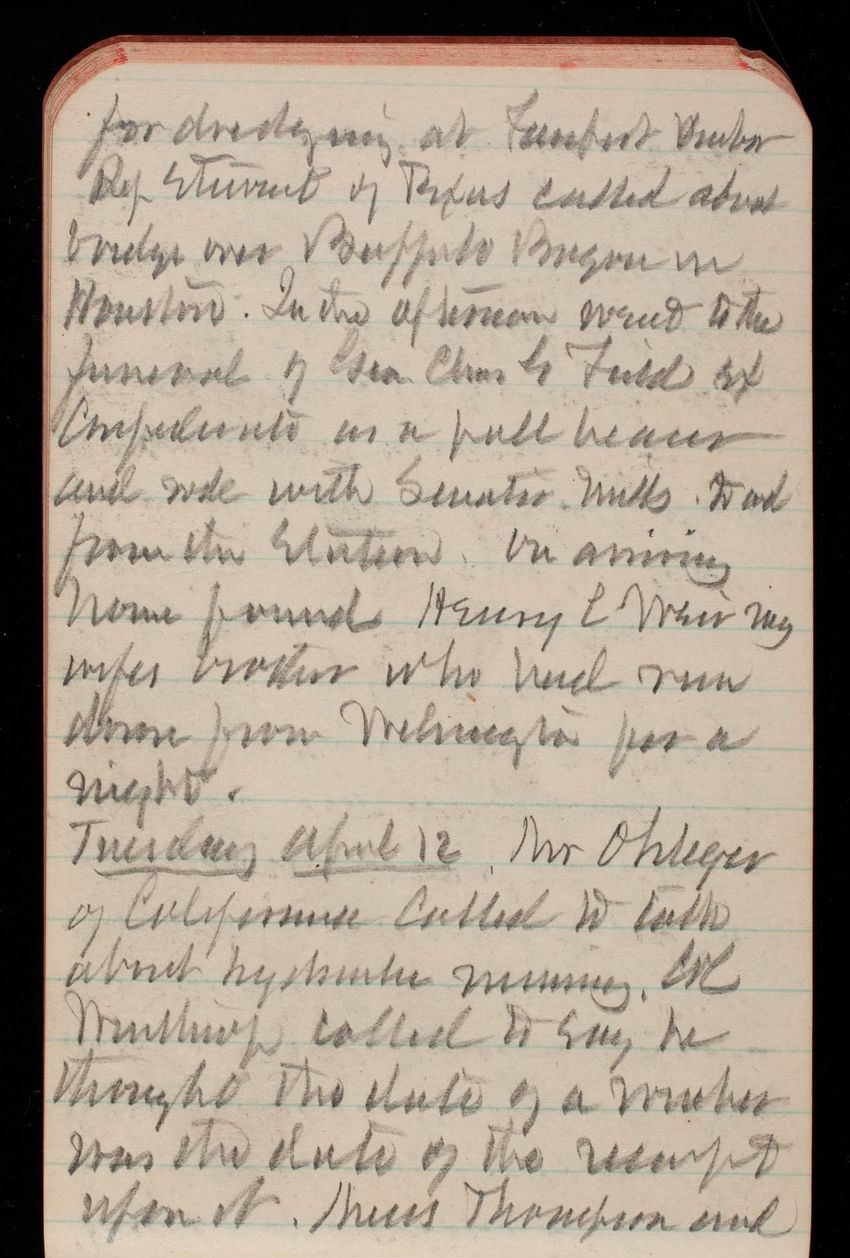 for dredging at Harbor
Rep Stewart of Texas called about
bridge over Buffalo Bayou in
Houston. In the afternoon went to the
funeral of Gen Chas W Field ex
Confederate as a pall bearer
and rode with Senator Mills to and
from the Station. On arriving
home found Henry C Weir my
wifes brother who had run
down from Wilmington for a
night.
Tuesday April 12. Mr Ohleyer
of California called to talk
about hydraulic mining. Col
Winthrop called to say he
thought the date of a voucher
was the date of the receipt
upon it. Thompson and